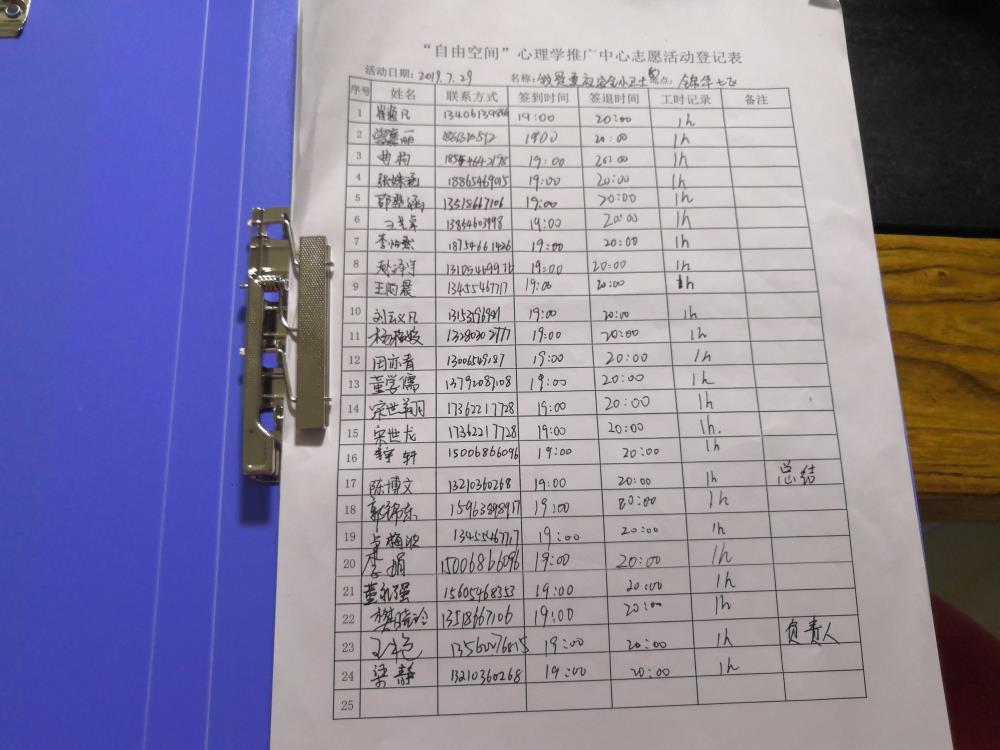 “自由空间”心理学推广中心志愿活动登记表
活动日期：2019.7.29 名称：我是重权安全小卫士 地点：金华七区
序号 姓名 联系方式 签到时间 签退时间 工时记录 备注
1 凡 19:00 20:00 1h
2 丽 1900 20:00 1h
3 19:00 20:00 1h
4 张姝涵 18865469015 19:00 20:00 1h
5 13518667106 19:00 20:00 1h
6 13854603998 19:00 20:00 1h
7 李怡霖 18754661426 19:00 20:00 1h
8 赵泽宇 19:00 20:00 1h
9 王雨晨 13455467717 19:00 20:00 1h
10 刘云义凡 19:00 20:00 1h
11 杨雅姣 13280302777 19:00 20:00 1h
12 田亦青 13006549187 19:00 20:00 1h
13 董学儒 13792087108 19:00 20:00 1h
14 宗世翔 17362217728 19:00 20:00 1h
15 宗世龙 17362217728 19:00 20:00 1h.
16 轩 15006866096 19:00 20:00 1h
17 陈博文 13210360268 19:00 20:00 1h 总结
18 郭锦东 15963898917 19:00 20:00 1h
19 梅波 13455467717 19:00 20:00 1h
20 李娟 15006866096 19:00 20:00 1h
21 董永强 15605468353 19:00 20:00 1h
22 樊晓玲 13518667106 19:00 20:00 1h
23 王艳 13560076815 19:00 20:00 1h 负责人
24 梁静 13210360268 19:00 20:00 1h
25